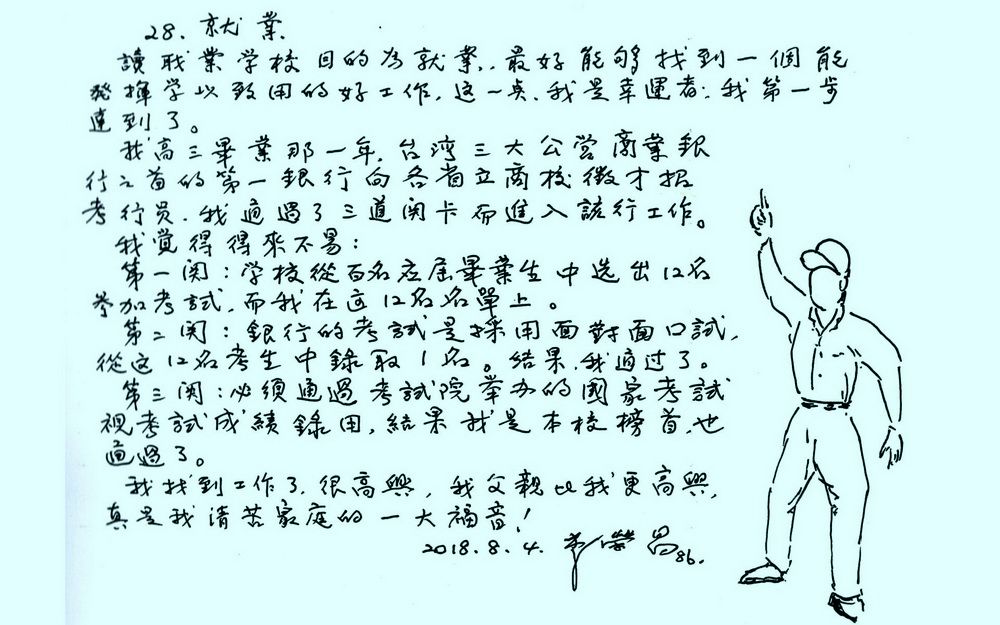 28. 就業
讀职業学校目的為就業,最好能够找到一個能
発揮学以致用的好工作,这一点,我是幸運者,我第一步
達到了。
我高三畢業那一年,台湾三大公营商業銀
行之首的第一銀行向各省立商校徵才招
考行员,我通過了三道関卡而進入該行工作。
我覚得得來不易:
第一関:学校從百名应届畢業生中选出12名
参加考試,而我在这12名名單上。
第二関:銀行的考試是採用面對面口試,
從这12名考生中録取1名。结果,我通过了。
第三関:必須通過考試院举办的國家考試
視考試成績錄用,結果我是本校榜首,也
通過了。
我找到工作了,很高興,我父親比我更高興,
真是我清苦家庭的一大福音!
2018.8.4. 榮昌86.